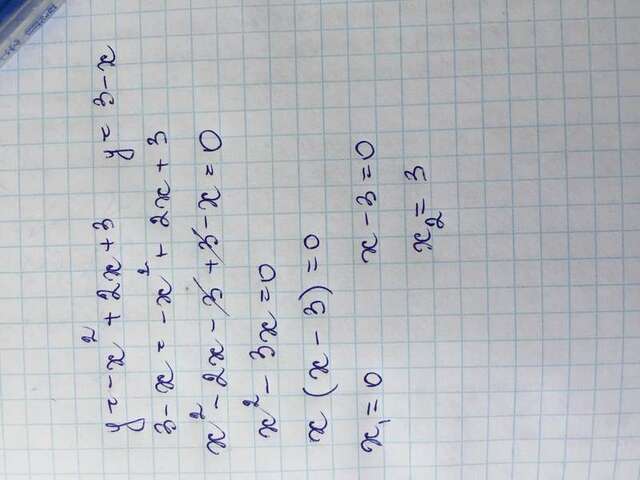 y = -x² + 2x + 3 y = 3 - x
3 - x = -x² + 2x + 3
x² - 2x - 3 + 3 - x = 0
x² - 3x = 0
x (x - 3) = 0
x₁ = 0 x - 3 = 0
x₂ = 3